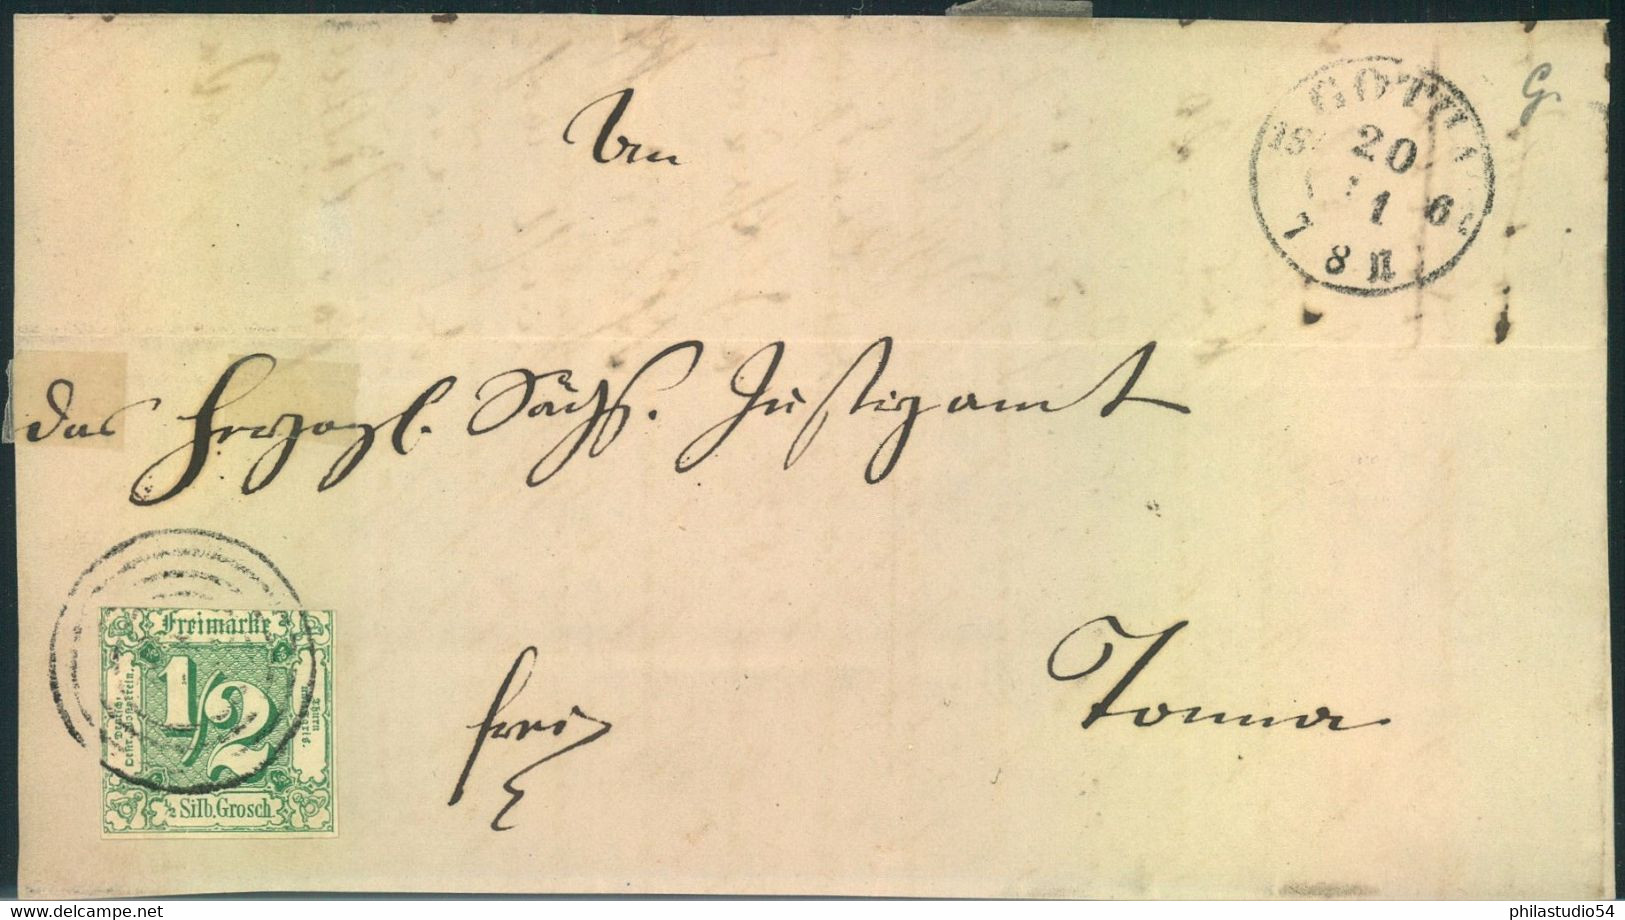 An
GOTHA
20
1 6
7 8 N
G.
das Herzogl. Sächs. Justizamt
Freimarke
1/2
½ Silb. Grosch.
Deutsch-
Oestr. Postverein.
Thurn
u. Taxis.
frei
Tonna
www.delcampe.net
philastudio54